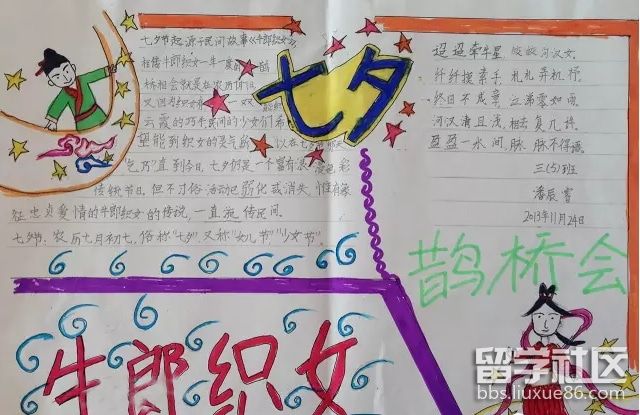 七夕节起源于民间故事《牛郎织女》
相传牛郎织女一年一度的鹊
桥相会就是在农历的七
云霞的巧手民间的少女们希
望能到织女的灵气所以在七
"乞巧"直到今日,七夕仍是一个富有浪漫色彩
传统节日,但不少俗活动已弱化或消失,惟有象
征忠贞爱情的牛郎织女的传说,一直流传民间。
七夕节,农历七月初七,俗称"七夕",又称"女儿节","少女节".
七夕
迢迢牵牛星,皎皎河汉女。
纤纤擢素手,札札弄机杼
终日不成章,泣涕零如雨。
河汉清且浅,相去复几许。
盈盈一水间,脉脉不得语。
三(5)班
潘辰睿
2013年11月24日
鹊桥会
牛郎织女
留学社区
bbs.liuxue86.com